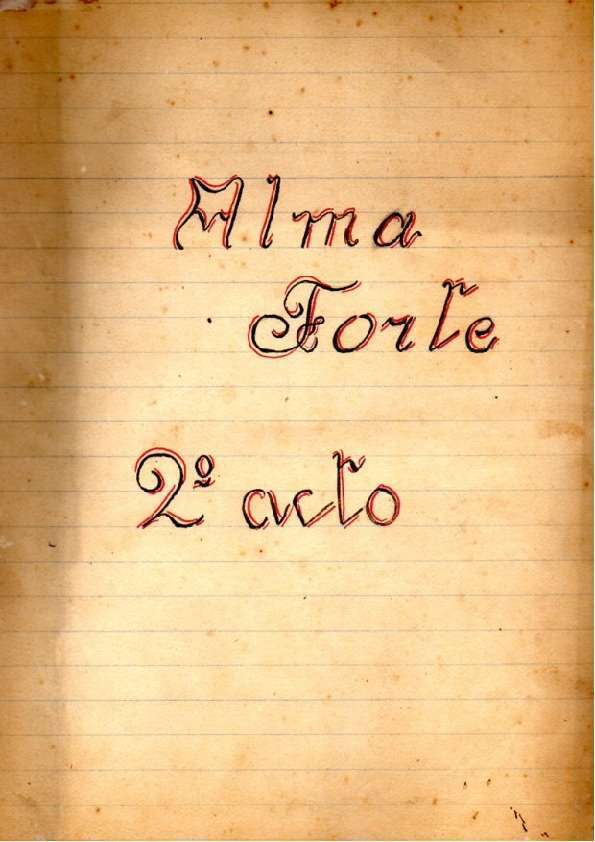 Alma
Forte
2º acto